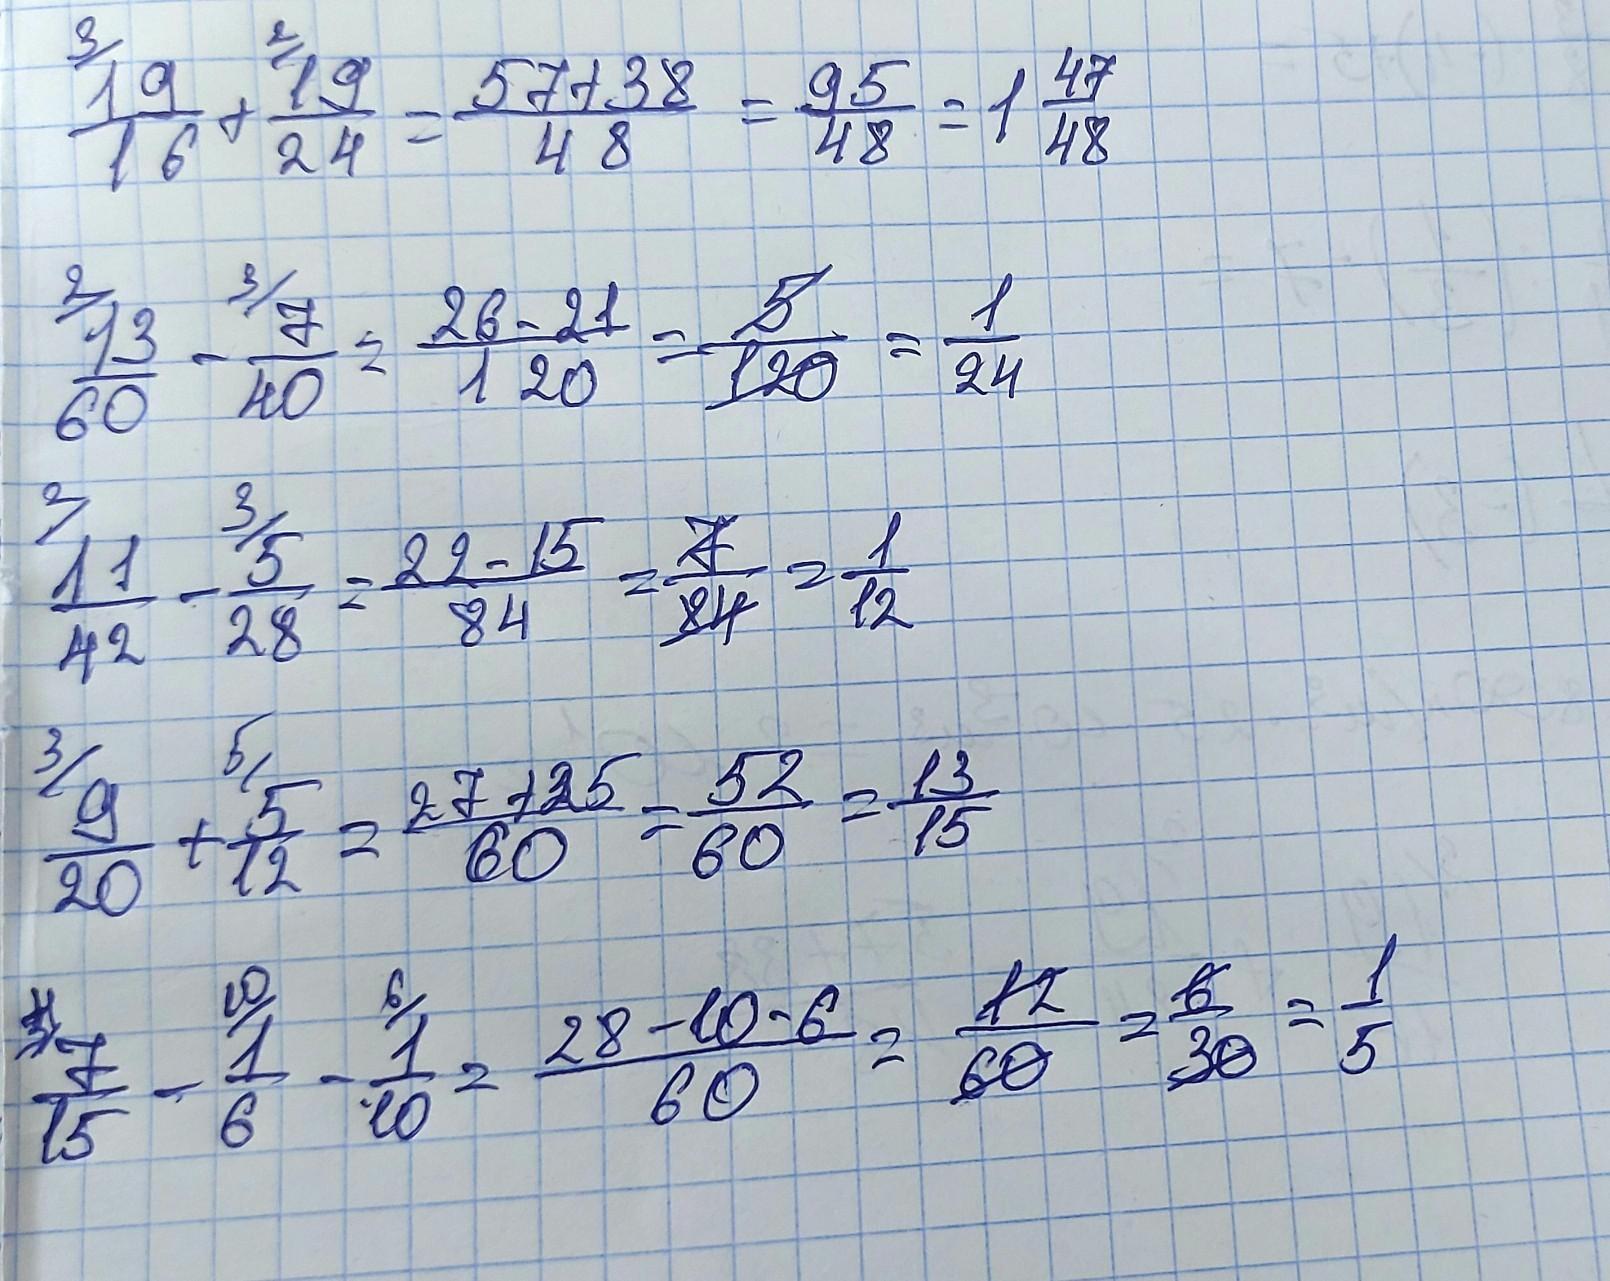 3/ 19/16 + 2/ 19/24 = 57+38/48 = 95/48 = 1 47/48
2/ 13/60 - 3/ 7/40 = 26-21/120 = 5/120 = 1/24
2/ 11/42 - 3/ 5/28 = 22-15/84 = 7/84 = 1/12
3/ 9/20 + 5/ 5/12 = 27+25/60 = 52/60 = 13/15
4/ 7/15 - 10/ 1/6 - 6/ 1/10 = 28-10-6/60 = 12/60 = 6/30 = 1/5